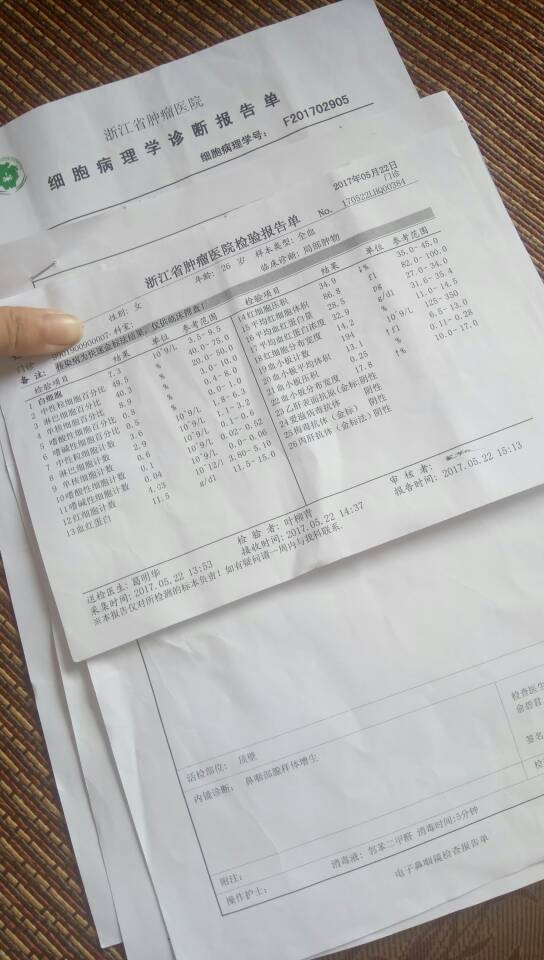 浙江省肿瘤医院
细胞病理学诊断报告单
细胞病理学号: F201702905
浙江省肿瘤医院检验报告单
2017年05月22日
门诊
No. 170522LHQ00384
性别: 女 年龄: 26 岁 样本类型: 全血
9901900900007 科室: 临床诊断: 局部肿物
备 注: 指染病为快速金标法结果, 仅供临床排查!
检验项目 结果 单位 参考范围
1 白细胞 7.3 10^9/L 3.5-9.5
2 中性粒细胞百分比 49.5 % 40.0-75.0
3 淋巴细胞百分比 40.3 % 20.0-50.0
4 单核细胞百分比 % 3.0-10.0
5 嗜酸性细胞百分比 % 0.4-8.0
6 嗜碱性细胞百分比 % 0.0-1.0
7 中性粒细胞计数 3.6 10^9/L 1.8-6.3
8 淋巴细胞计数 2.9 10^9/L 1.1-3.2
9 单核细胞计数 0.6 10^9/L 0.1-0.6
10 嗜酸性细胞计数 0.1 10^9/L 0.02-0.52
11 嗜碱性细胞计数 0.04 10^9/L 0.0-0.06
12 红细胞计数 10^12/l 3.80-5.10
13 血红蛋白 11.5 g/dl 11.5-15.0
检验项目 结果 单位 参考范围
14 红细胞压积 34.9 l% 35.0-45.0
15 平均红细胞体积 86.8 fl 82.0-100.0
16 平均血红蛋白量 28.5 pg 27.0-34.0
17 平均血红蛋白浓度 32.9 g/dl 31.6-35.4
18 红细胞分布宽度 14.2 % 11.0-14.5
19 血小板计数 194 10^9/L 125-350
20 血小板平均体积 13.1 fl 6.5-13.0
21 血小板压积 0.25 % 0.11-0.28
22 血小板分布宽度 17.8 % 10.0-17.0
23 乙肝表面抗原(金标) 阴性
24 爱滋病毒抗体 阴性
25 梅毒抗体(金标) 阴性
26 丙肝抗体(金标法) 阴性
送检医生: 葛明华 检 验 者: 叶柳青 审 核 者:
采集时间: 2017.05.22 13:53 接收时间: 2017.05.22 14:37 报告时间: 2017.05.22 15:13
※本报告仅对所检测的标本负责! 如有疑问请一周内与我科联系.
活检部位: 顶壁
内镜诊断: 鼻咽部腺样体增生
检查医生
俞碧君
签名
附注: 消毒液: 邻苯二甲醛 消毒时间:5分钟
操作护士:
电子鼻咽镜检查报告单